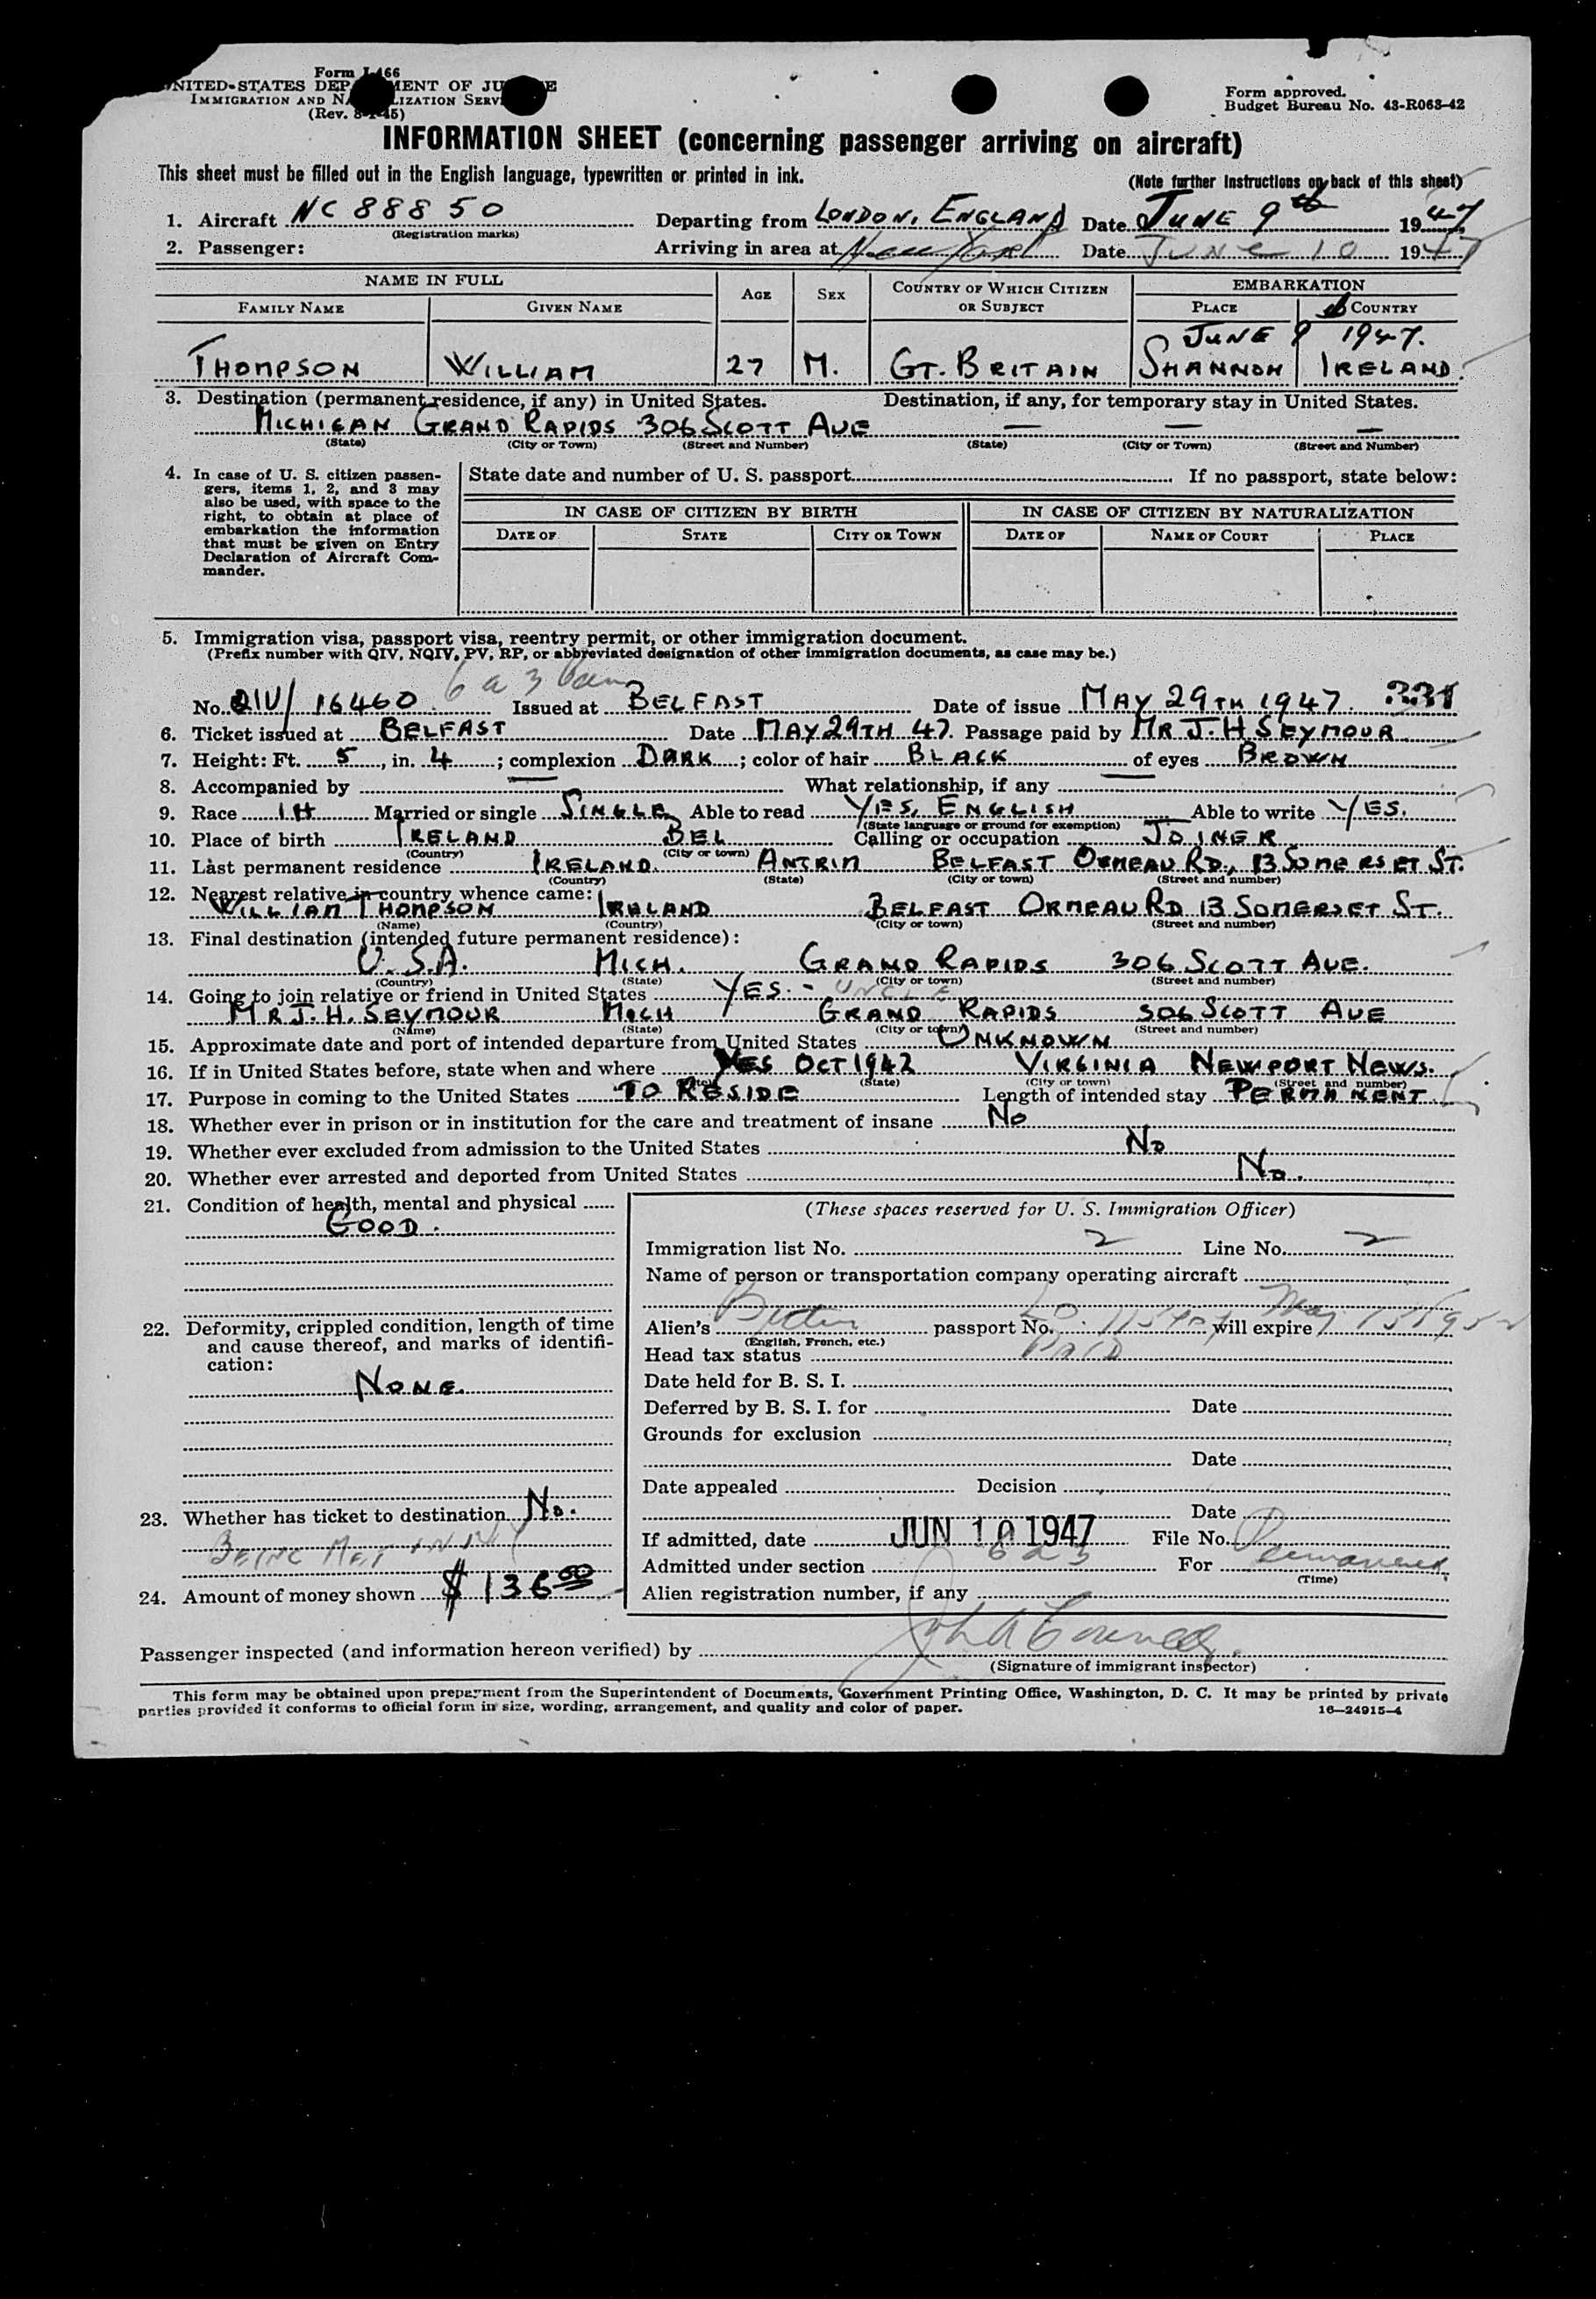 Form I-466
UNITED STATES DEP MENT OF JU E
IMMIGRATION AND NA LIZATION SERV
(Rev. 8-1-45)
Form approved.
Budget Bureau No. 43-R063-42
INFORMATION SHEET (concerning passenger arriving on aircraft)
This sheet must be filled out in the English language, typewritten or printed in ink.
(Note further instructions on back of this sheet)
1. Aircraft NC 88850 Departing from LONDON, ENGLAND Date JUNE 9th 1947
(Registration marks)
2. Passenger: Arriving in area at New York Date JUNE 10 1947
NAME IN FULL AGE SEX COUNTRY OF WHICH CITIZEN OR SUBJECT EMBARKATION
FAMILY NAME GIVEN NAME PLACE COUNTRY
JUNE 9 1947.
THOMPSON WILLIAM 27 M. GT. BRITAIN SHANNON IRELAND.
3. Destination (permanent residence, if any) in United States. Destination, if any, for temporary stay in United States.
MICHIGAN GRAND RAPIDS 306 SCOTT AVE — — —
(State) (City or Town) (Street and Number) (State) (City or Town) (Street and Number)
4. In case of U. S. citizen passen-
gers, items 1, 2, and 3 may
also be used, with space to the
right, to obtain at place of
embarkation the information
that must be given on Entry
Declaration of Aircraft Com-
mander.
State date and number of U. S. passport If no passport, state below:
IN CASE OF CITIZEN BY BIRTH IN CASE OF CITIZEN BY NATURALIZATION
DATE OF STATE CITY OR TOWN DATE OF NAME OF COURT PLACE
5. Immigration visa, passport visa, reentry permit, or other immigration document.
(Prefix number with QIV, NQIV, PV, RP, or abbreviated designation of other immigration documents, as case may be.)
6 a 3
No. QIV/ 16460 Issued at BELFAST Date of issue MAY 29TH 1947. 331
6. Ticket issued at BELFAST Date MAY 29TH 47. Passage paid by MR J. H SEYMOUR
7. Height: Ft. 5, in. 4; complexion DARK; color of hair BLACK of eyes BROWN
8. Accompanied by — What relationship, if any —
9. Race IH Married or single SINGLE Able to read YES, ENGLISH Able to write YES.
(State language or ground for exemption)
10. Place of birth IRELAND BEL Calling or occupation JOINER
(Country) (City or town)
11. Last permanent residence IRELAND. ANTRIM BELFAST ORMEAU RD., 13 SOMERSET ST.
(Country) (State) (City or town) (Street and number)
12. Nearest relative in country whence came:
WILLIAM THOMPSON IRELAND BELFAST ORMEAU RD 13 SOMERSET ST.
(Name) (Country) (City or town) (Street and number)
13. Final destination (intended future permanent residence):
U.S.A. MICH. GRAND RAPIDS 306 SCOTT AVE.
(Country) (State) (City or town) (Street and number)
14. Going to join relative or friend in United States YES - UNCLE
MR J. H. SEYMOUR MICH GRAND RAPIDS 306 SCOTT AVE
(Name) (State) (City or town) (Street and number)
15. Approximate date and port of intended departure from United States UNKNOWN
16. If in United States before, state when and where YES OCT 1942 VIRGINIA NEWPORT NEWS.
(Date) (State) (City or town) (Street and number)
17. Purpose in coming to the United States TO RESIDE Length of intended stay PERMANENT
18. Whether ever in prison or in institution for the care and treatment of insane NO
19. Whether ever excluded from admission to the United States NO
20. Whether ever arrested and deported from United States NO.
21. Condition of health, mental and physical
GOOD.
22. Deformity, crippled condition, length of time
and cause thereof, and marks of identifi-
cation:
NONE.
23. Whether has ticket to destination NO.
BEING MET IN NY
24. Amount of money shown $136.00
(These spaces reserved for U. S. Immigration Officer)
Immigration list No. 2 Line No. 2
Name of person or transportation company operating aircraft
Alien's passport No. will expire May 15 1952
(English, French, etc.)
Head tax status PAID
Date held for B. S. I.
Deferred by B. S. I. for Date
Grounds for exclusion
Date
Date appealed Decision
Date
If admitted, date JUN 10 1947 File No.
Admitted under section 6 a 3 For Permanent
(Time)
Alien registration number, if any
Passenger inspected (and information hereon verified) by
(Signature of immigrant inspector)
This form may be obtained upon prepayment from the Superintendent of Documents, Government Printing Office, Washington, D. C. It may be printed by private
parties provided it conforms to official form in size, wording, arrangement, and quality and color of paper.
16—24915-4